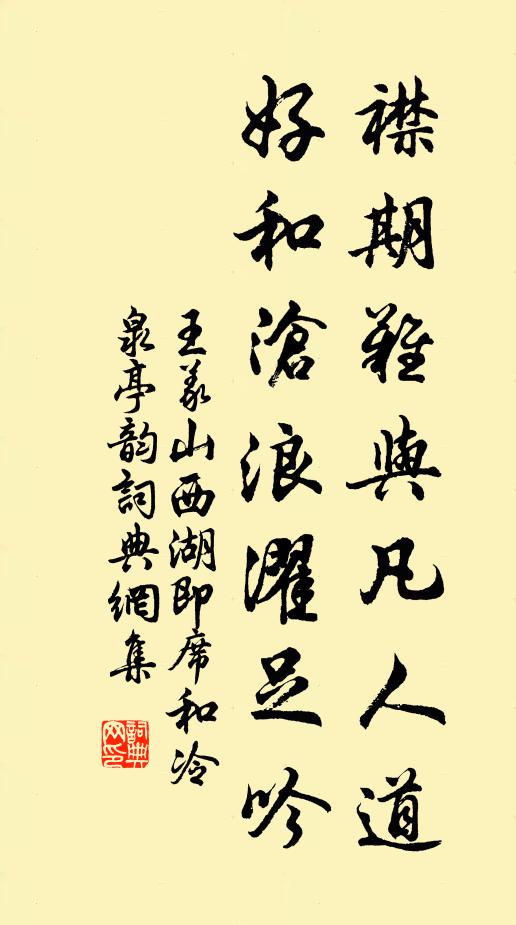 襟期難與凡人道
好和滄浪濯足吟
王義山西湖即席和冷
泉亭韵詞典網集
詞典